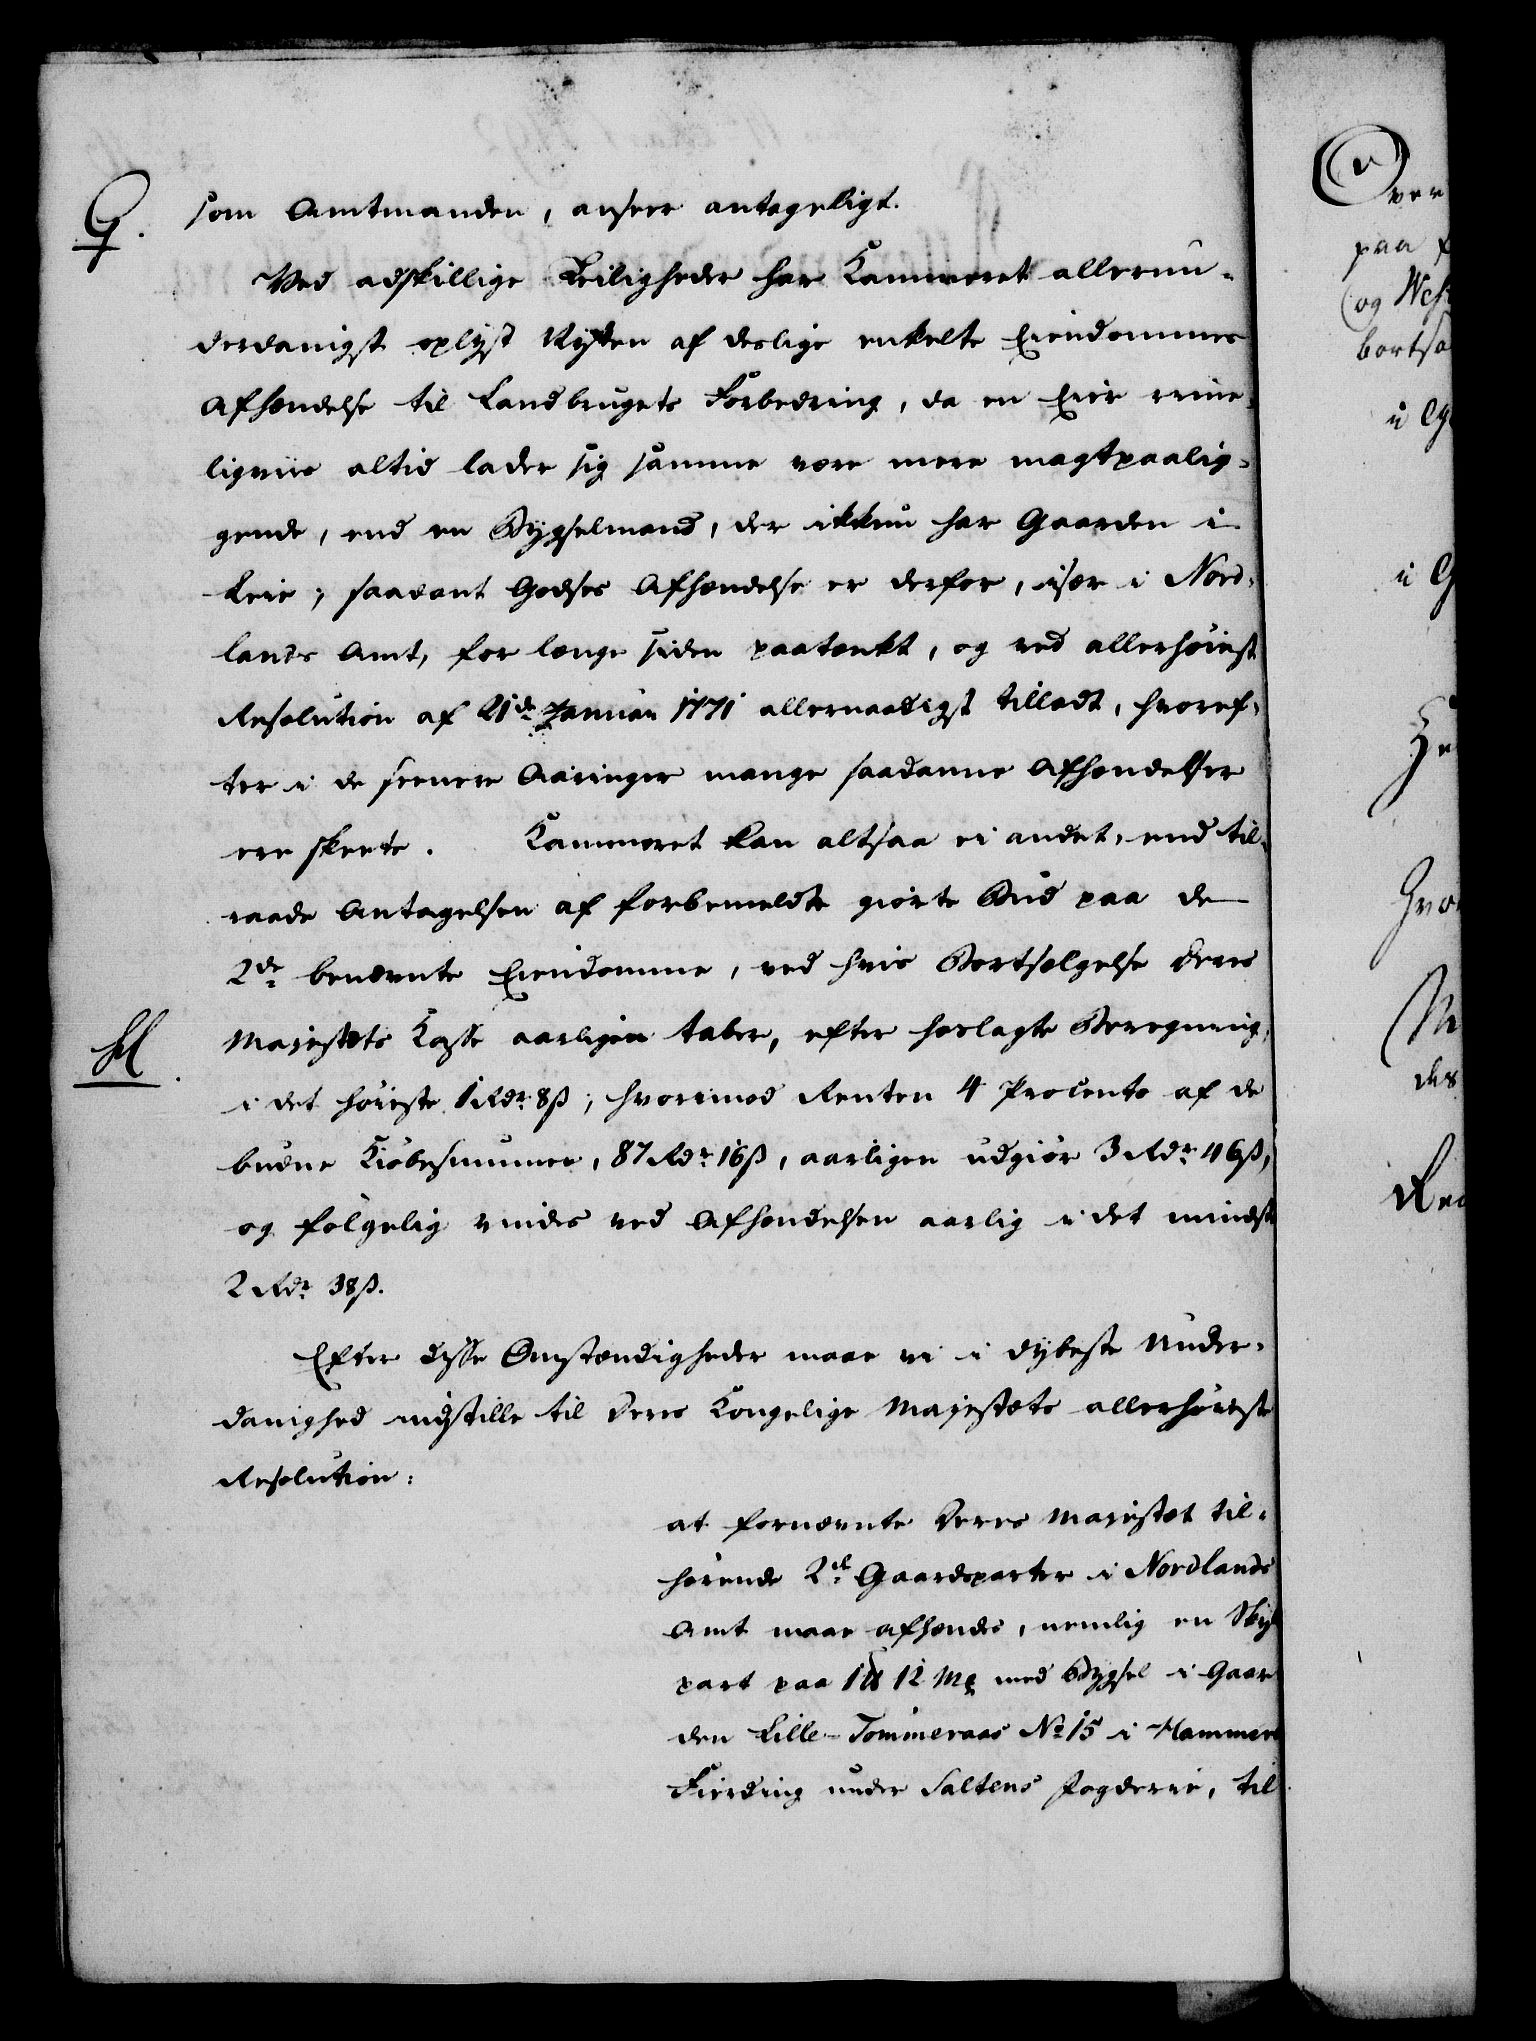 G. som Amtmanden, anseer antageligt.
Ved adskillige Leiligheder har Kammeret allerun-
derdanigst oplyst Nytten af deslige enkelte Eiendommes
Afhændelse til Landbrugets Forbedring, da en Eier rime-
ligviis altid lader sig samme være mere magtpaalig-
gende, end en Bygselmand, der ikkun har Gaarden i
Leie; saadant Godses Afhændelse er derfor, især i Nord-
lands Amt, for længe siden paatænkt, og ved allerhøieste
Resolution af 21de Januar 1771 allernaadigst tilladt, hvoref-
ter i de seenere Aaringer mange saadanne Afhændelser
ere skeete. Kammeret kan altsaa ei andet, end til-
raade Antagelsen af forbemeldte giorte Bud paa de
2de benævnte Eiendomme, ved hvis Bortsælgelse Deres
H. Majestæts Kasse aarligen taber, efter hoslagte Beregning,
i det høieste 1 Rdr. 8 ß; hvorimod Renten 4 Procento af de
budne Kiøbesummer, 87 Rdr. 16 ß, aarligen udgiør 3 Rdr. 46 ß,
og følgelig vindes ved Afhændelsen aarlig i det mindste
2 Rdr. 38 ß.
Efter disse Omstændigheder maae vi i dybeste Under-
danighed indstille til Deres Kongelige Majestæts allerhøieste
Resolution:
at fornævnte Deres Majestæt til-
hørende 2de Gaardsparter i Nordlands
Amt maae afhændes, nemlig en
part paa 1 12 Mk med Bygsel i Gaar
den Lille-Tømmeraas No 15 i Hammer
Fierding under Saltens Fogderie, til
over
paa
og
bortsæ
Hvor
des